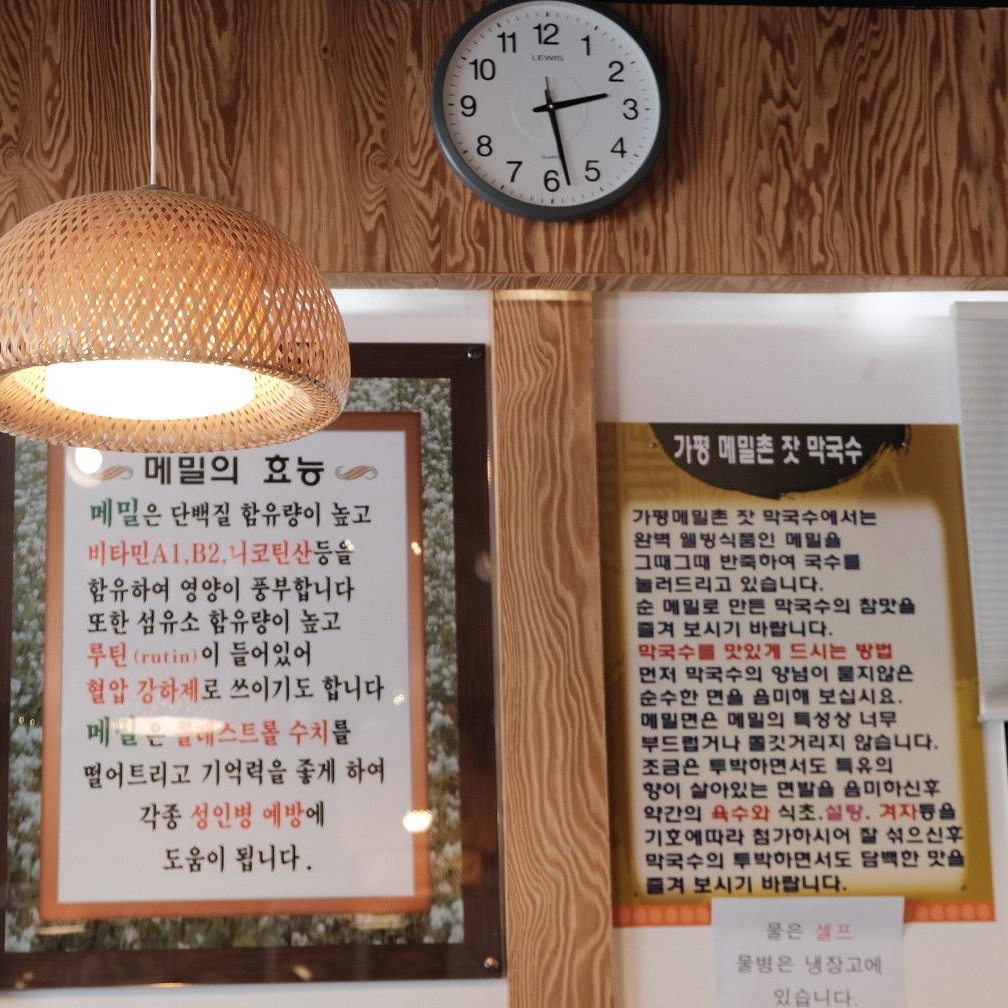 11 12 1
10 2
9 3
8 4
7 6 5
LEWIS
메밀의 효능
메밀은 단백질 함유량이 높고
비타민A1,B2,니코틴산등을
함유하여 영양이 풍부합니다
또한 섬유소 함유량이 높고
루틴(rutin)이 들어있어
혈압 강하제로 쓰이기도 합니다
메밀은 콜레스트롤 수치를
떨어트리고 기억력을 좋게 하여
각종 성인병 예방에
도움이 됩니다.
가평 메밀촌 잣 막국수
가평메밀촌 잣 막국수에서는
완벽 웰빙식품인 메밀을
그때그때 반죽하여 국수를
눌러드리고 있습니다.
순 메밀로 만든 막국수의 참맛을
즐겨 보시기 바랍니다.
막국수를 맛있게 드시는 방법
먼저 막국수의 양념이 묻지않은
순수한 면을 음미해 보십시요.
메밀면은 메밀의 특성상 너무
부드럽거나 쫄깃거리지 않습니다.
조금은 투박하면서도 특유의
향이 살아있는 면발을 음미하신후
약간의 육수와 식초.설탕. 겨자등을
기호에따라 첨가하시어 잘 섞으신후
막국수의 투박하면서도 담백한 맛을
즐겨 보시기 바랍니다.
물은 셀프
물병은 냉장고에
있습니다.